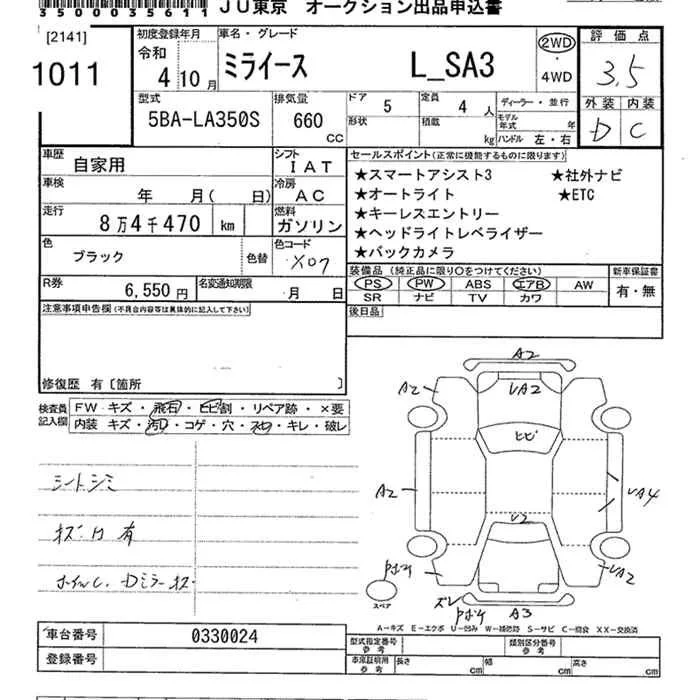 35000035611
JU東京 オークション出品申込書
[2141]
1011
初度登録年月
令和
4 10月
車名・グレード
ミライース L_SA3
2WD
・
4WD
評価点
3.5
外装 内装
D C
型式
5BA-LA350S
排気量
660
CC
ドア 5
定員 4 人
形状
積載 kg
ディーラー・並行
モデル年式 年
ハンドル 左・右
車歴
自家用
シフト
IAT
車検
年 月( 日)
冷房
AC
走行
8万4千470 km
燃料
ガソリン
色
ブラック
色替
色コード
X07
R券
6,550円
名変通知期限
月 日
セールスポイント(正常に機能するものに限ります)
★スマートアシスト3 ★社外ナビ
★オートライト ★ETC
★キーレスエントリー
★ヘッドライトレベライザー
★バックカメラ
装備品 (純正品に限り○をつけてください)
PS PW ABS エアB AW
SR ナビ TV カワ
新車保証書
有・無
後日品
注意事項申告欄(不具合内容等は具体的に記入して下さい)
修復歴 有〔箇所 〕
検査員
記入欄
FW キズ・飛石・ヒビ割・リペア跡・×要
内装 キズ・汚れ・コゲ・穴・スレ・キレ・破レ
シートシミ
ホイルC. Dミラーキズ
A2
A2
UA2
ヒビ
A2
UA4
U2
UA2
ズレ
A3
スペア
A-キズ E-エクボ U-凹み W-補修跡 S-サビ C-腐食 XX-交換済
車台番号 0330024
登録番号
型式指定番号
参考
類別区分番号
参考
車庫証明用
参考
長さ cm
幅 cm
高さ cm